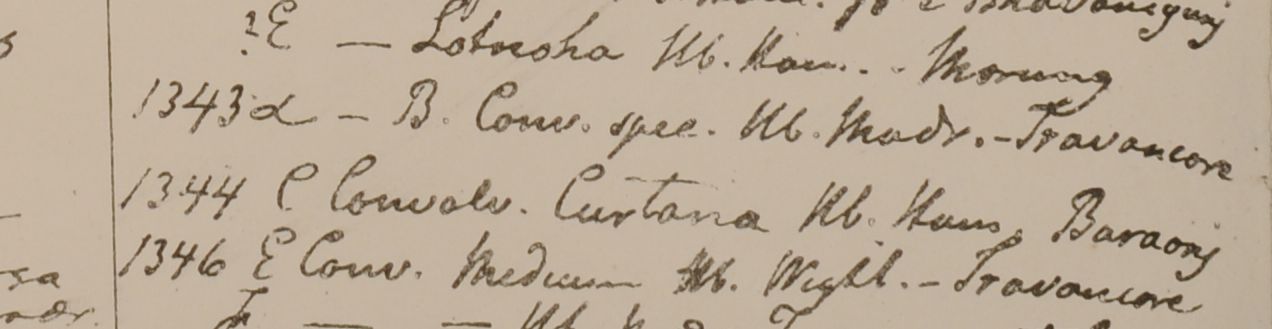 ?E — Lotnoha Hb. Ham. - Morung
1343 α - B. Conv. spec. Hb. Madr. - Travancore
1344 C Convolv. Curtana Hb. Ham. Baraony
1346 E Conv. Medium Hb. Wight. - Travancore